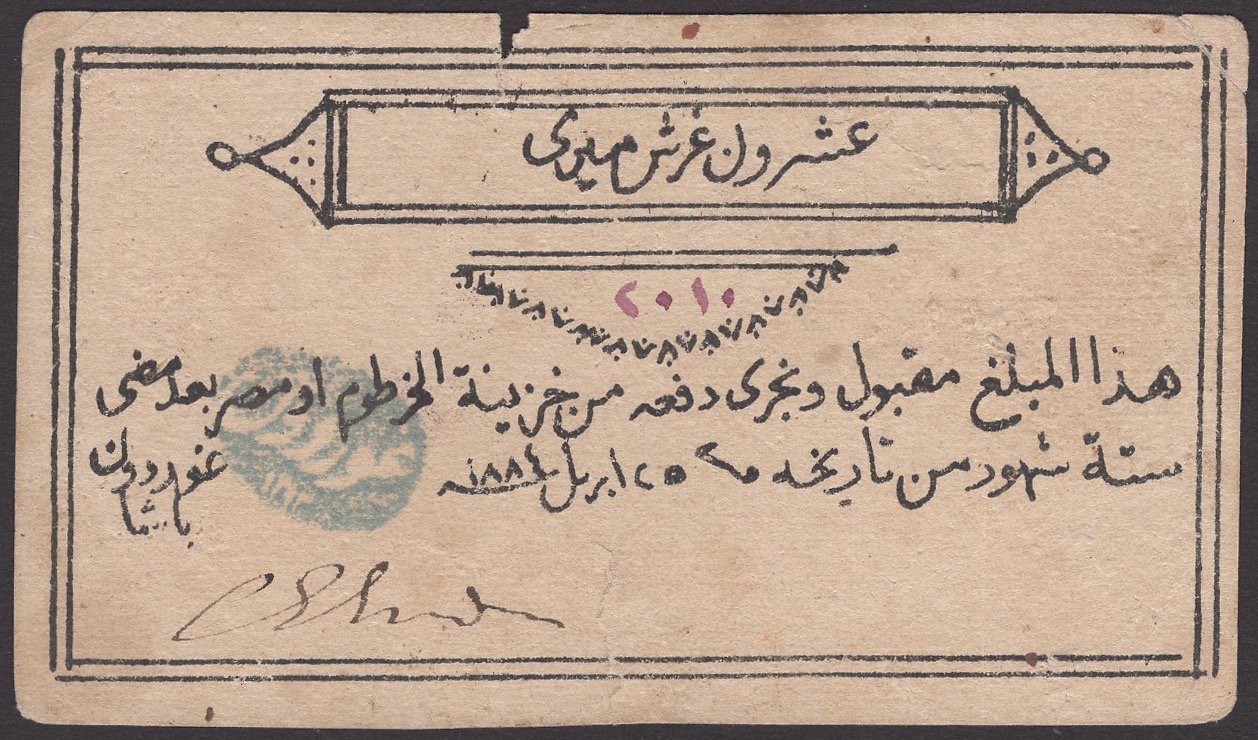 عشرون غرش ميرى
٢٠١٠
هذا المبلغ مقبول ويجرى دفعه من خزينة الخرطوم او مصر بعد مضى
ستة شهور من تاريخه ٢٥ ابريل ١٨٨٤ غوردون
باشا